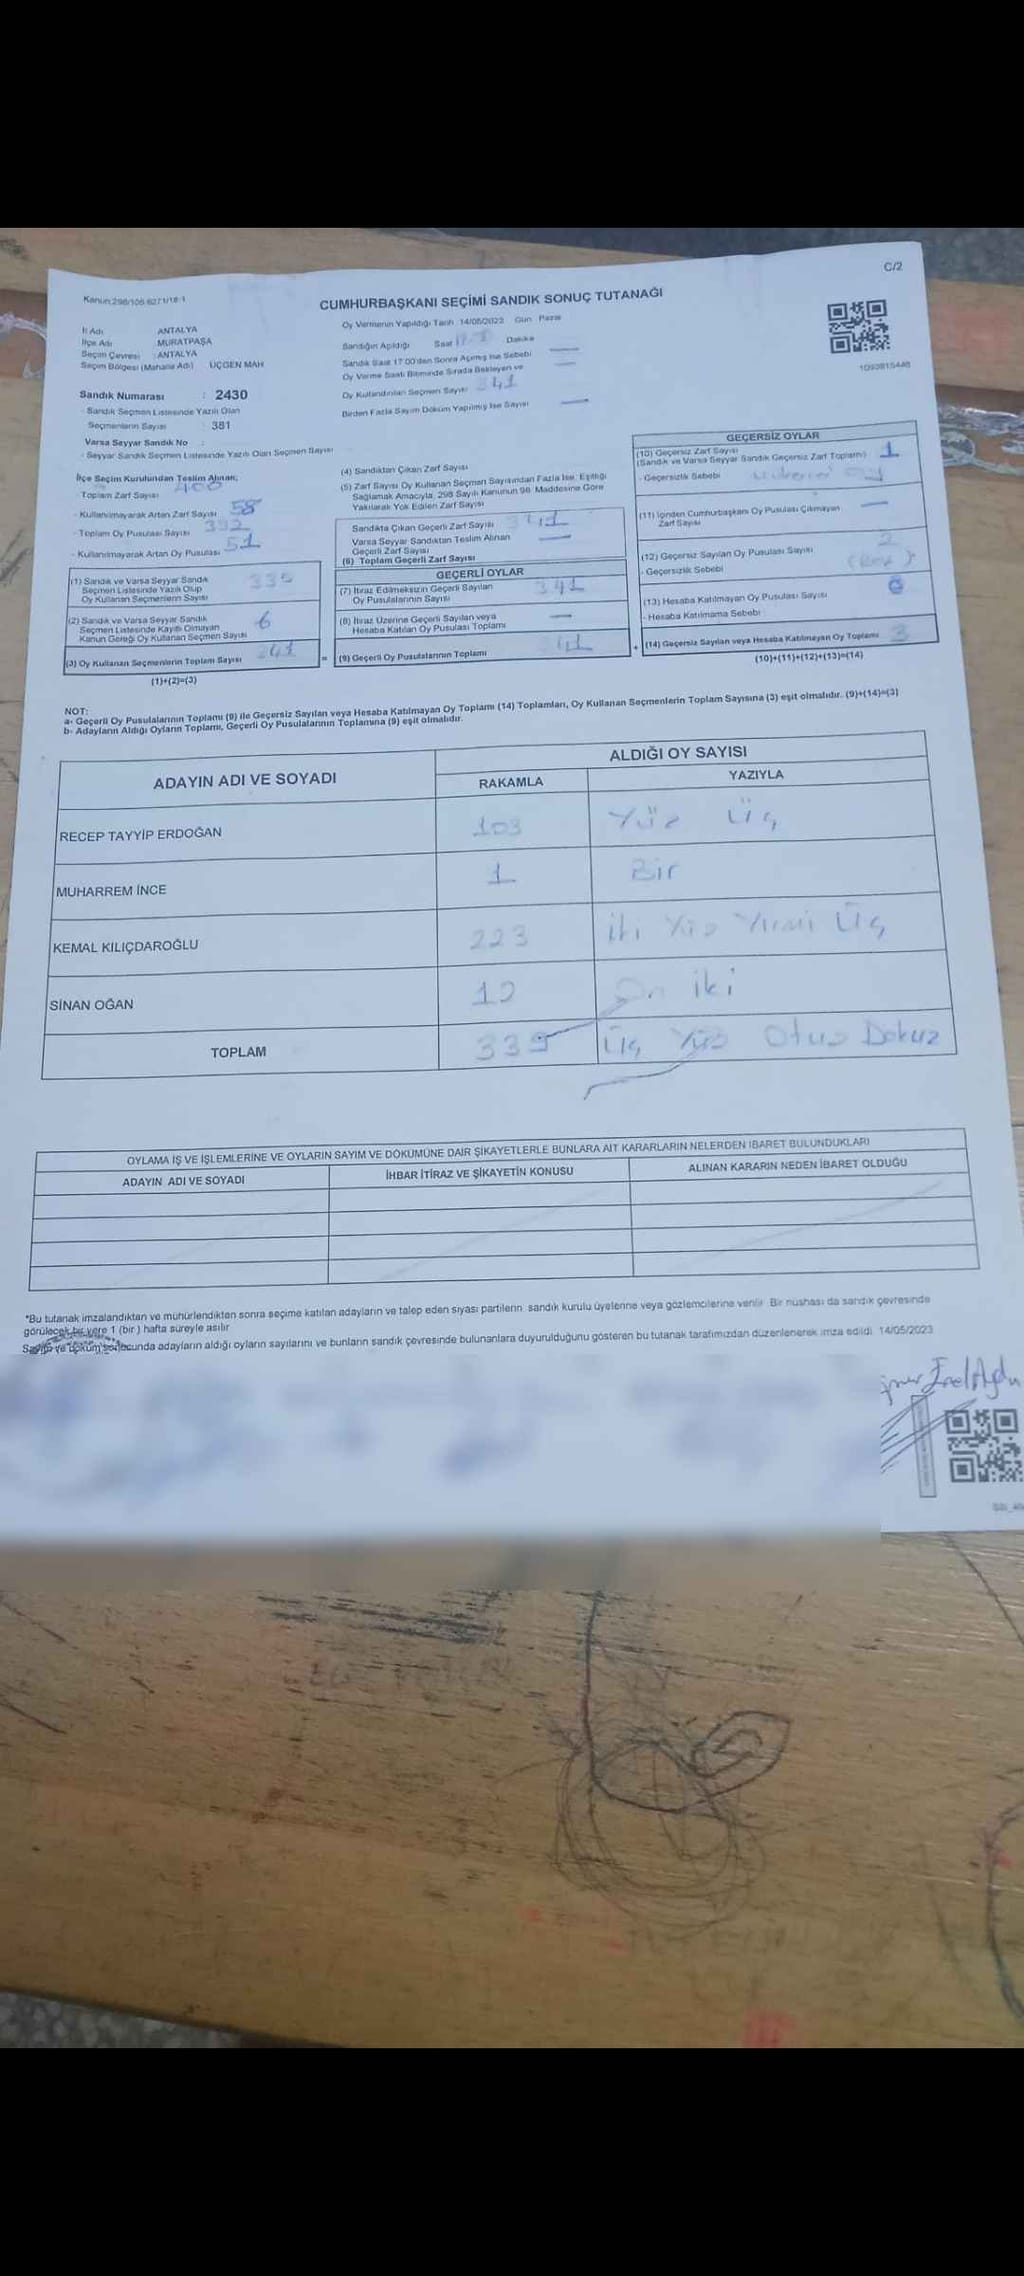 C/2
Kanun:298/105-6271/18-1
CUMHURBAŞKANI SEÇİMİ SANDIK SONUÇ TUTANAĞI
İl Adı ANTALYA
İlçe Adı MURATPAŞA
Seçim Çevresi : ANTALYA
Seçim Bölgesi (Mahalle Adı) ÜÇGEN MAH
Sandık Numarası : 2430
- Sandık Seçmen Listesinde Yazılı Olan
Seçmenlerin Sayısı : 381
Varsa Seyyar Sandık No :
- Seyyar Sandık Seçmen Listesinde Yazılı Olan Seçmen Sayısı
Oy Vermenin Yapıldığı Tarih 14/05/2023 Gün Pazar
Sandığın Açıldığı Saat Dakika
Sandık Saat 17.00'den Sonra Açılmış İse Sebebi
Oy Verme Saati Bitiminde Sırada Bekleyen ve
Oy Kullandırılan Seçmen Sayısı 341
Birden Fazla Sayım Döküm Yapılmış İse Sayısı
1093815448
İlçe Seçim Kurulundan Teslim Alınan;
- Toplam Zarf Sayısı 400
- Kullanılmayarak Artan Zarf Sayısı 58
- Toplam Oy Pusulası Sayısı 392
- Kullanılmayarak Artan Oy Pusulası 51
(1) Sandık ve Varsa Seyyar Sandık
Seçmen Listesinde Yazılı Olup
Oy Kullanan Seçmenlerin Sayısı 335
(2) Sandık ve Varsa Seyyar Sandık
Seçmen Listesinde Kayıtlı Olmayan
Kanun Gereği Oy Kullanan Seçmen Sayısı 6
(3) Oy Kullanan Seçmenlerin Toplam Sayısı 341
(1)+(2)=(3)
(4) Sandıktan Çıkan Zarf Sayısı
(5) Zarf Sayısı Oy Kullanan Seçmen Sayısından Fazla İse, Eşitliği
Sağlamak Amacıyla, 298 Sayılı Kanunun 98. Maddesine Göre
Yakılarak Yok Edilen Zarf Sayısı
Sandıkta Çıkan Geçerli Zarf Sayısı 341
Varsa Seyyar Sandıktan Teslim Alınan
Geçerli Zarf Sayısı
(6) Toplam Geçerli Zarf Sayısı
GEÇERLİ OYLAR
(7) İtiraz Edilmeksizin Geçerli Sayılan
Oy Pusulalarının Sayısı 341
(8) İtiraz Üzerine Geçerli Sayılan veya
Hesaba Katılan Oy Pusulası Toplamı
= (9) Geçerli Oy Pusulalarının Toplamı
GEÇERSİZ OYLAR
(10) Geçersiz Zarf Sayısı
(Sandık ve Varsa Seyyar Sandık Geçersiz Zarf Toplamı) 1
- Geçersizlik Sebebi
(11) İçinden Cumhurbaşkanı Oy Pusulası Çıkmayan
Zarf Sayısı
(12) Geçersiz Sayılan Oy Pusulası Sayısı 2
- Geçersizlik Sebebi
(13) Hesaba Katılmayan Oy Pusulası Sayısı
- Hesaba Katılmama Sebebi
+ (14) Geçersiz Sayılan veya Hesaba Katılmayan Oy Toplamı 3
(10)+(11)+(12)+(13)=(14)
NOT:
a- Geçerli Oy Pusulalarının Toplamı (9) ile Geçersiz Sayılan veya Hesaba Katılmayan Oy Toplamı (14) Toplamları, Oy Kullanan Seçmenlerin Toplam Sayısına (3) eşit olmalıdır. (9)+(14)=(3)
b- Adayların Aldığı Oyların Toplamı, Geçerli Oy Pusulalarının Toplamına (9) eşit olmalıdır.
ADAYIN ADI VE SOYADI ALDIĞI OY SAYISI
RAKAMLA YAZIYLA
RECEP TAYYİP ERDOĞAN 103 Yüz Üç
MUHARREM İNCE 1 Bir
KEMAL KILIÇDAROĞLU 223 İki Yüz Yirmi Üç
SİNAN OĞAN 12 On iki
TOPLAM 339 Üç Yüz Otuz Dokuz
OYLAMA İŞ VE İŞLEMLERİNE VE OYLARIN SAYIM VE DÖKÜMÜNE DAİR ŞİKAYETLERLE BUNLARA AİT KARARLARIN NELERDEN İBARET BULUNDUKLARI
ADAYIN ADI VE SOYADI İHBAR İTİRAZ VE ŞİKAYETİN KONUSU ALINAN KARARIN NEDEN İBARET OLDUĞU
*Bu tutanak imzalandıktan ve mühürlendikten sonra seçime katılan adayların ve talep eden siyasi partilerin sandık kurulu üyelerine veya gözlemcilerine verilir. Bir nüshası da sandık çevresinde
görülecek bir yere 1 (bir) hafta süreyle asılır
Sayım ve döküm sonucunda adayların aldığı oyların sayılarını ve bunların sandık çevresinde bulunanlara duyurulduğunu gösteren bu tutanak tarafımızdan düzenlenerek imza edildi. 14/05/2023